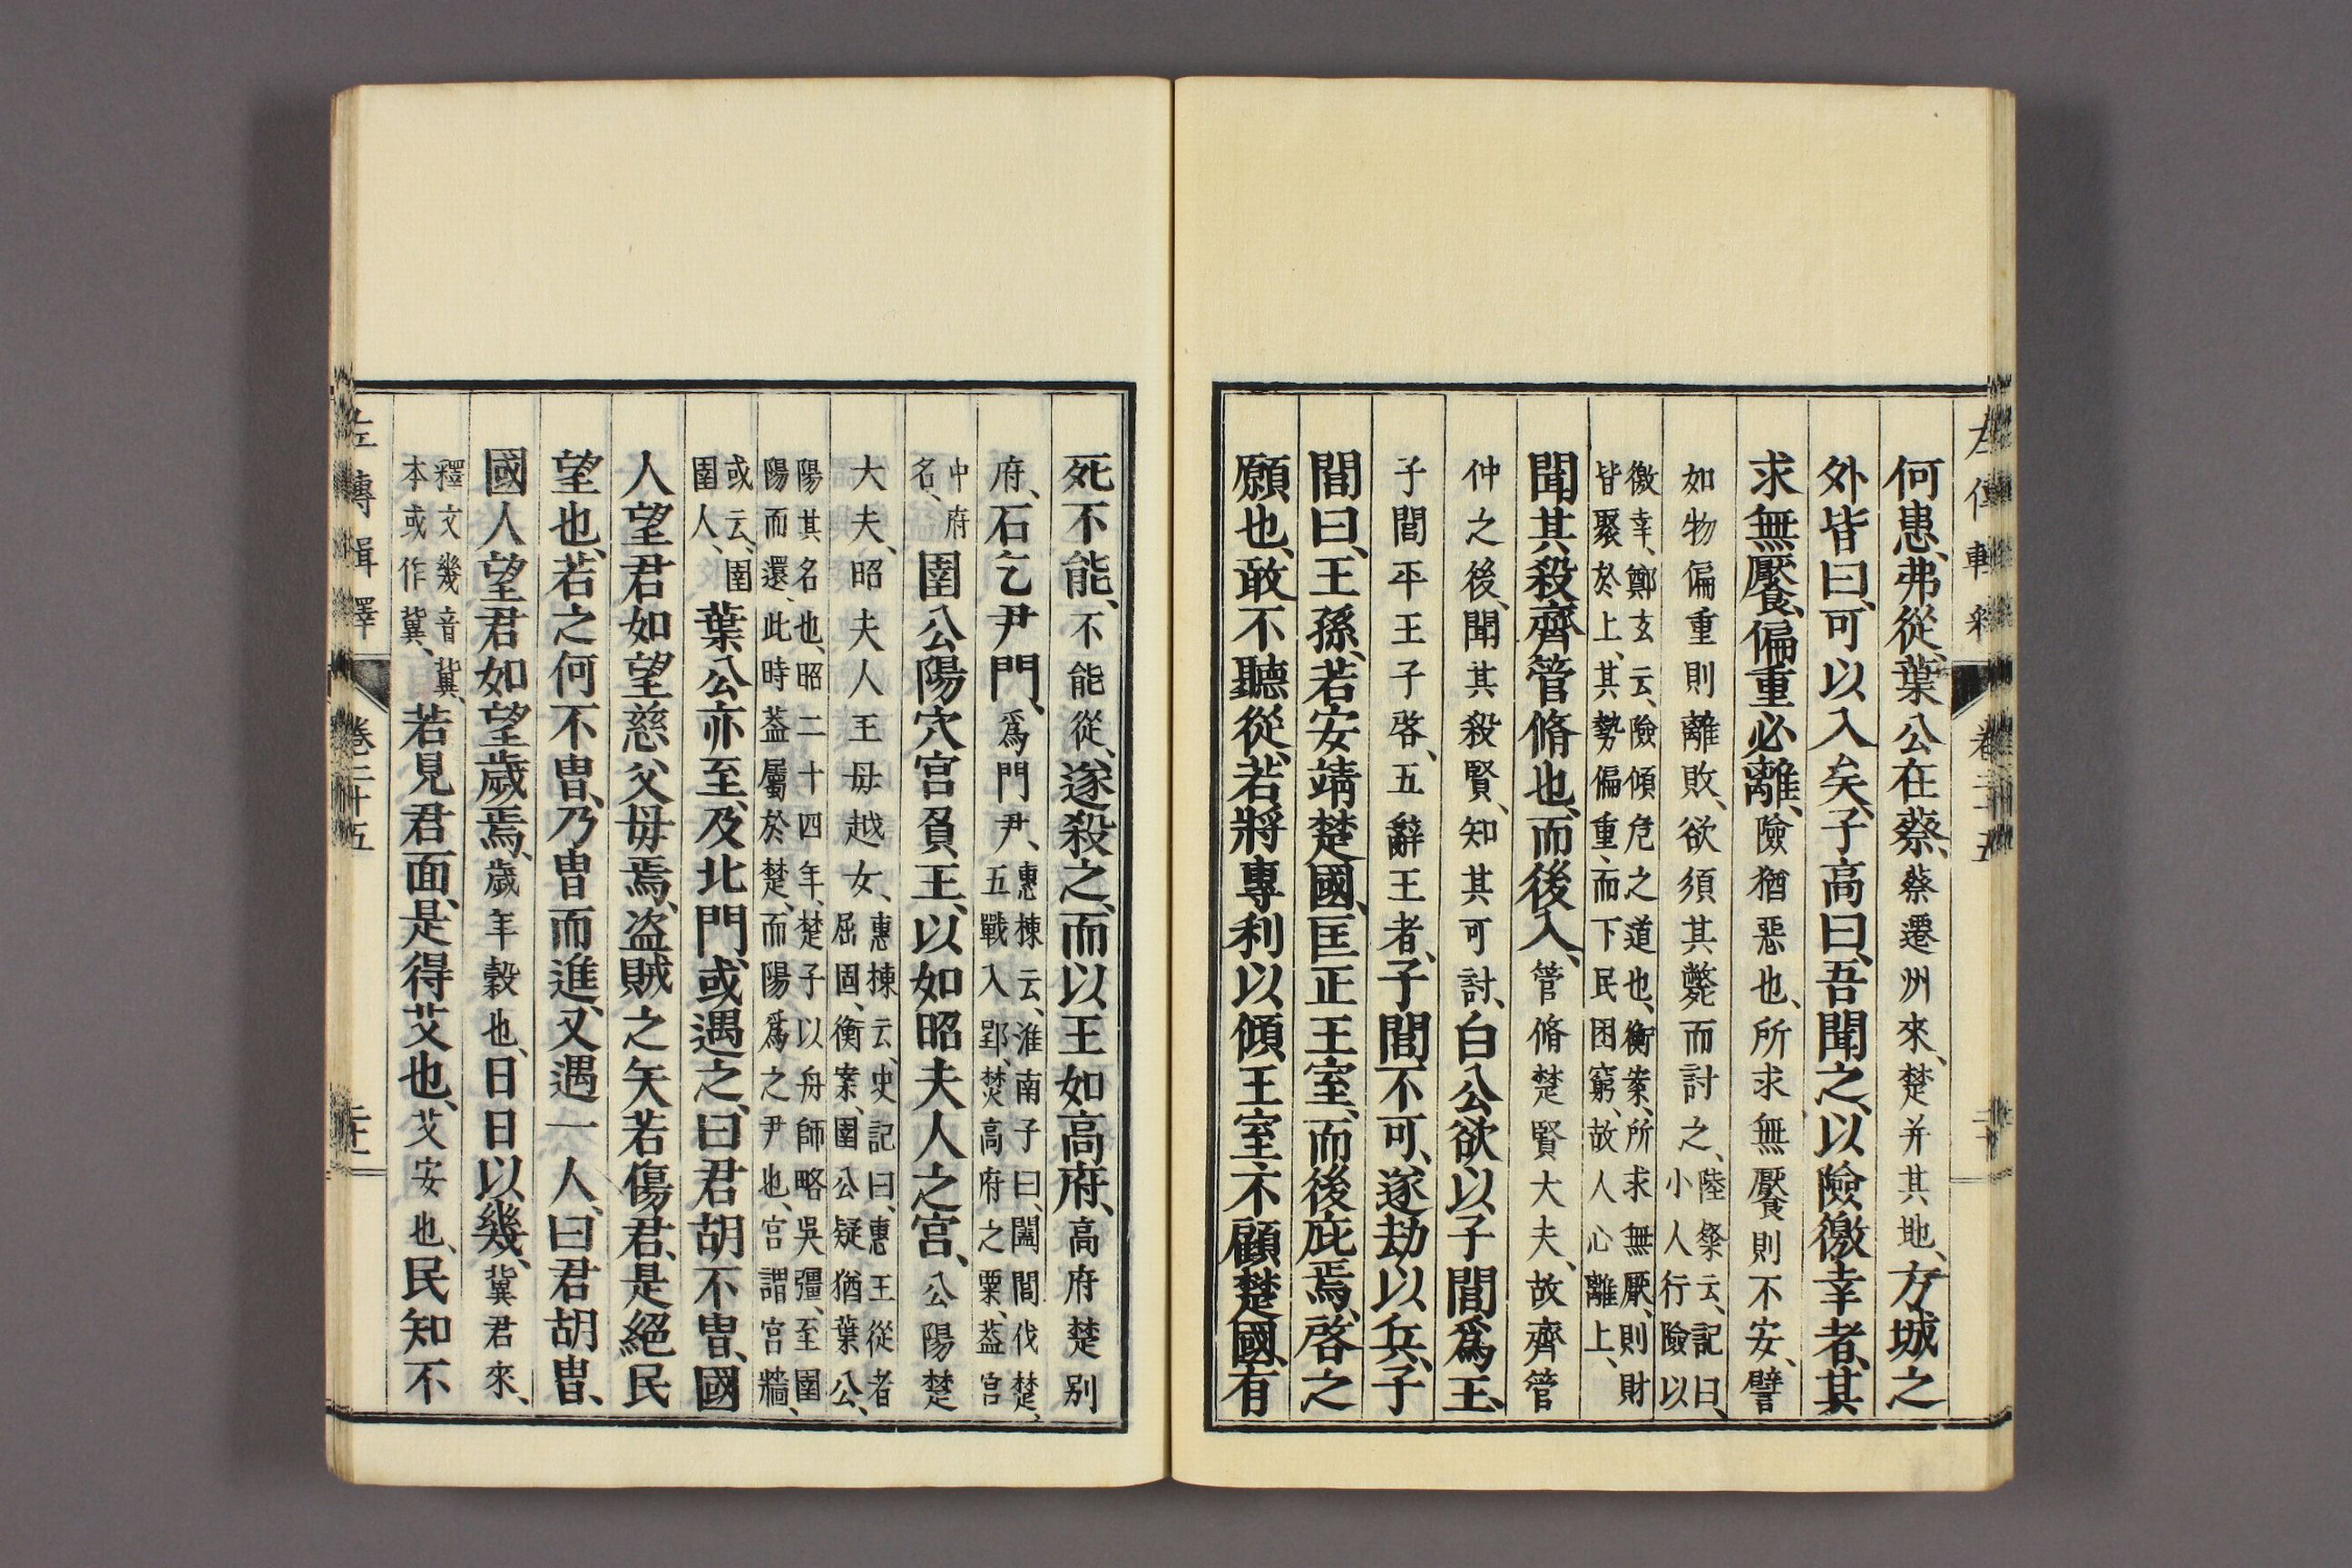 何患、弗從、葉公在蔡、蔡遷州來、楚并其地、方城之
外皆曰、可以入矣、子高曰、吾聞之、以險徼幸者、其
求無饜、偏重必離、險猶惡也、所求無饜則不安、譬
如物偏重則離敗、欲須其斃而討之、陸粲云、記曰、小人行險以
徼幸、鄭玄云、險傾危之道也、衡案、所求無厭、則財
皆聚於上、其勢偏重、而下民困窮、故人心離上、
聞其殺齊管脩也、而後入、管脩楚賢大夫、故齊管
仲之後、聞其殺賢、知其可討、白公欲以子閭爲王、
子閭平王子啓、五辭王者、子閭不可、遂劫以兵、子
閭曰、王孫、若安靖楚國、匡正王室、而後庇焉、啓之
願也、敢不聽從、若將專利以傾王室、不顧楚國、有
死不能、不能從、遂殺之、而以王如高府、高府楚別
府、石乞尹門、爲門尹、惠棟云、淮南子曰、闔閭伐楚、五戰入郢、焚高府之粟、蓋宮
中府名、圉公陽穴宮負王、以如昭夫人之宮、公陽楚
大夫、昭夫人王母越女、惠棟云、史記曰、惠王從者屈固、衡案、圉公疑猶葉公、
陽其名也、昭二十四年、楚子以舟師略吳彊、至圉
陽而還、此時蓋屬於楚、而陽爲之尹也、宮謂宮牆、
或云、圉圉人、葉公亦至、及北門、或遇之、曰君胡不冑、國
人望君如望慈父母焉、盜賊之矢若傷君、是絕民
望也、若之何不冑、乃冑而進、又遇一人、曰君胡冑、
國人望君如望歲焉、歲年穀也、日日以幾、冀君來、
釋文幾音冀、本或作冀、若見君面、是得艾也、艾安也、民知不
左傳輯釋 卷二十五